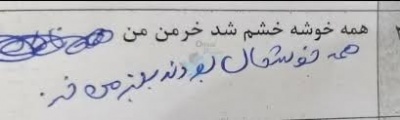 همه خوشه خشم شد خرمن من
همه خوشحال بودند بغیر من